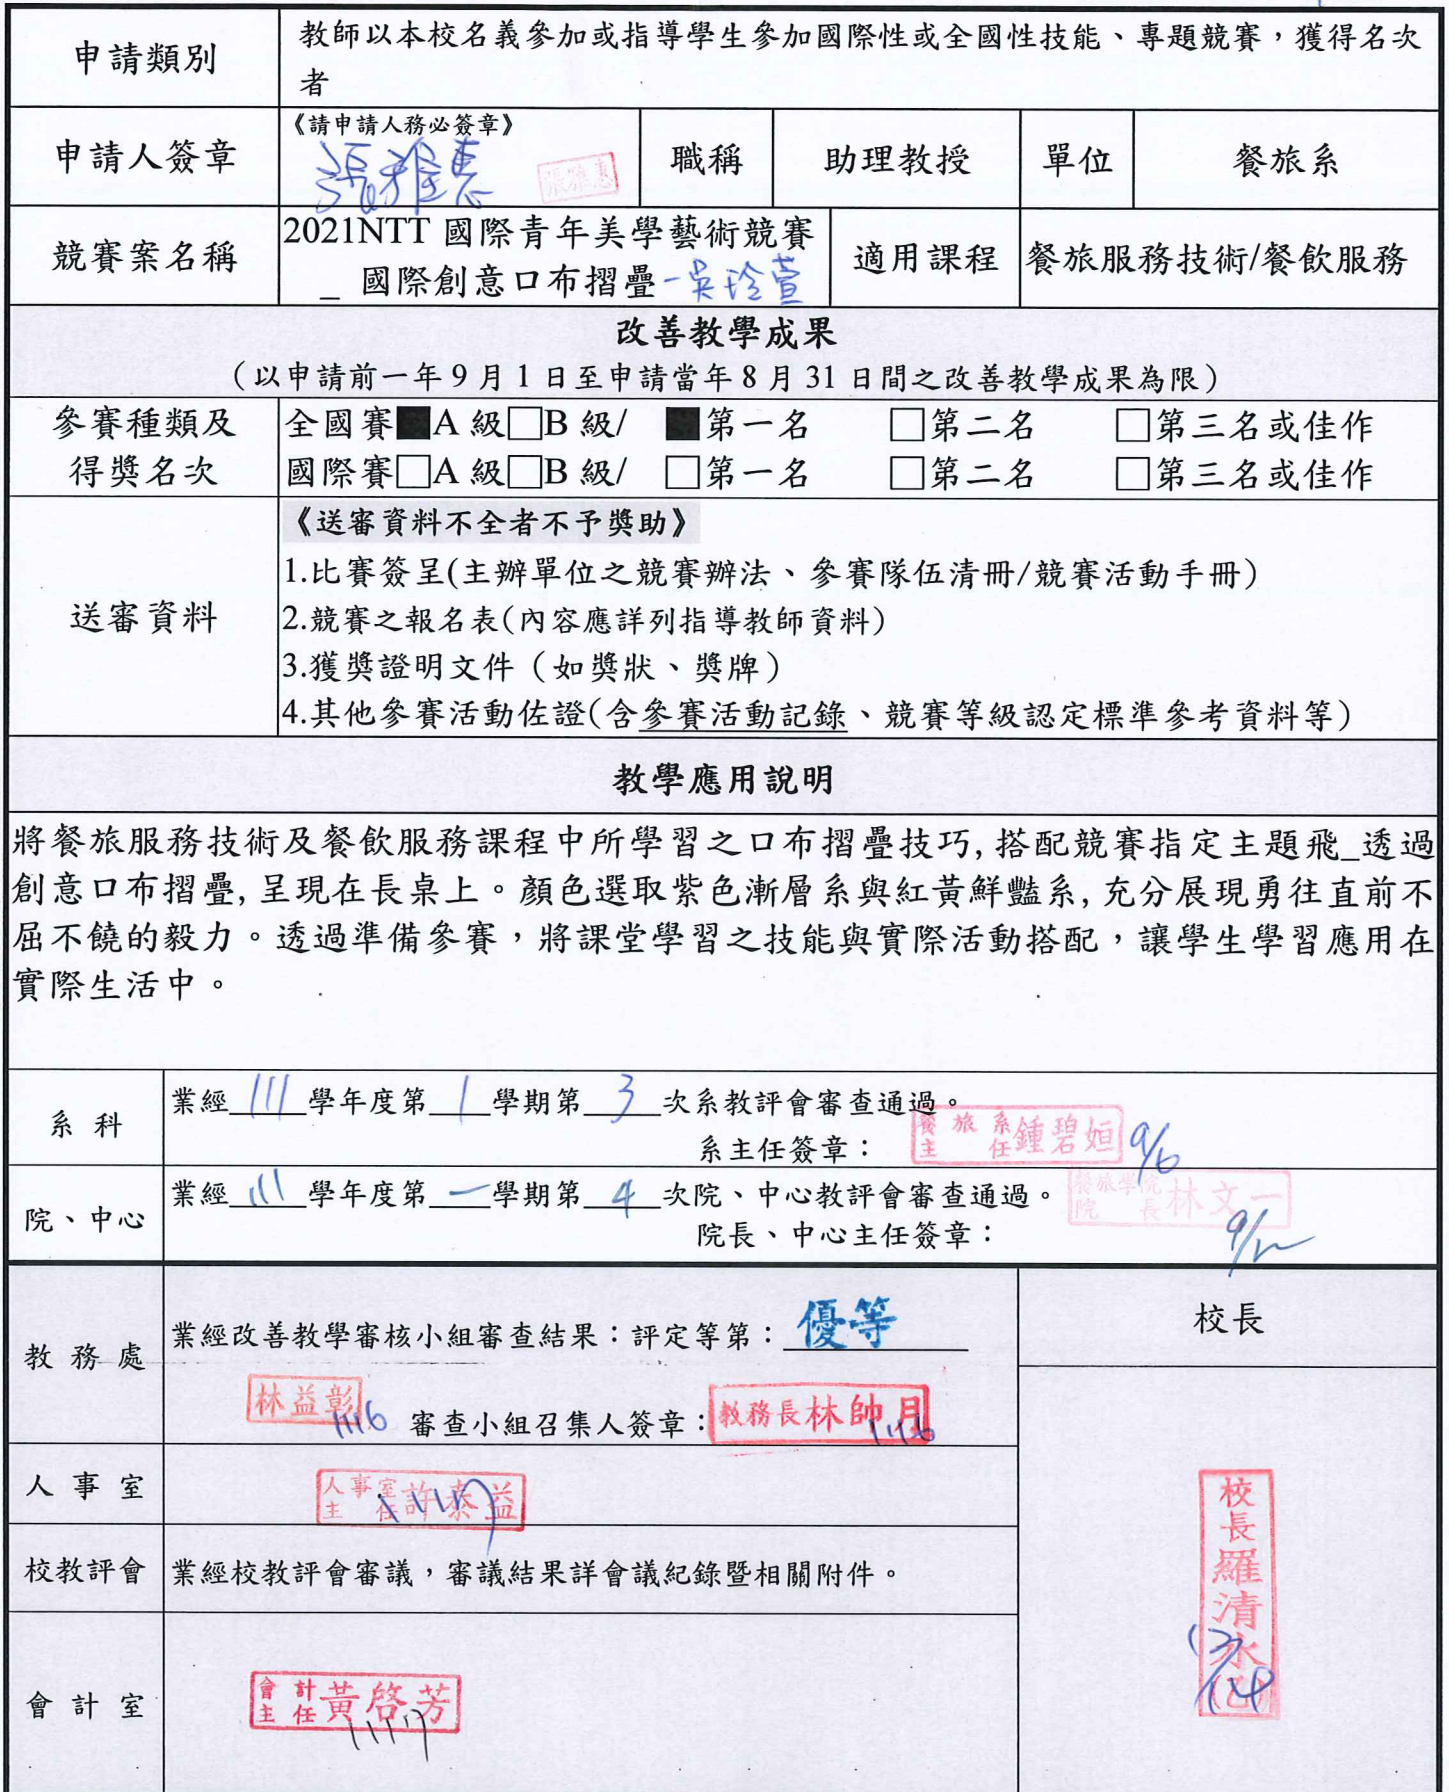 申請類別
教師以本校名義參加或指導學生參加國際性或全國性技能、專題競賽，獲得名次
者
申請人簽章
《請申請人務必簽章》
張雅惠
張雅惠
職稱
助理教授
單位
餐旅系
競賽案名稱
2021NTT 國際青年美學藝術競賽
_ 國際創意口布摺疊-吳玲萱
適用課程
餐旅服務技術/餐飲服務
改善教學成果
（以申請前一年 9 月 1 日至申請當年 8 月 31 日間之改善教學成果為限）
參賽種類及
得獎名次
全國賽■A 級□B 級/ ■第一名 □第二名 □第三名或佳作
國際賽□A 級□B 級/ □第一名 □第二名 □第三名或佳作
送審資料
《送審資料不全者不予獎助》
1.比賽簽呈(主辦單位之競賽辦法、參賽隊伍清冊/競賽活動手冊)
2.競賽之報名表(內容應詳列指導教師資料)
3.獲獎證明文件（如獎狀、獎牌）
4.其他參賽活動佐證(含參賽活動記錄、競賽等級認定標準參考資料等)
教學應用說明
將餐旅服務技術及餐飲服務課程中所學習之口布摺疊技巧,搭配競賽指定主題飛_透過
創意口布摺疊,呈現在長桌上。顏色選取紫色漸層系與紅黃鮮豔系,充分展現勇往直前不
屈不饒的毅力。透過準備參賽，將課堂學習之技能與實際活動搭配，讓學生學習應用在
實際生活中。
系科
業經 111 學年度第 1 學期第 3 次系教評會審查通過。
系主任簽章：
餐旅系主任 鍾碧姮 9/6
院、中心
業經 111 學年度第 一 學期第 4 次院、中心教評會審查通過。
院長、中心主任簽章：
餐旅學院院長 林文一
9/12
教務處
業經改善教學審核小組審查結果：評定等第：優等
林益彰 1116
審查小組召集人簽章：
教務長林帥月 1116
校長
人事室
人事室主任 許泰益 1117
校教評會
業經校教評會審議，審議結果詳會議紀錄暨相關附件。
會計室
會計主任 黃啓芳
1117
校長羅清水(乙)